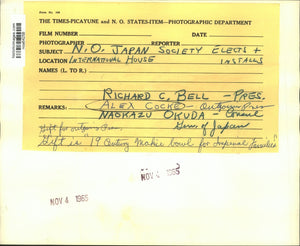 THE TIMES-PICAYUNE and N. O. STATES-ITEM—PHOTOGRAPHIC DEPARTMENT
FILM NUMBER DATE
PHOTOGRAPHER REPORTER
SUBJECT N.O. JAPAN SOCIETY ELECTS +
LOCATION INTERNATIONAL HOUSE INSTALLS
NAMES (L. TO R.)
RICHARD C. BELL - PRES.
REMARKS: ALEX COCKE - Outgoing Pres
NAOKAZU OKUDA - Consul
Gen. of Japan
Gift for outgoing Pres.
Gift is "19 Century Makie bowl for Imperial Families"
NOV 4 1965
NOV 1965